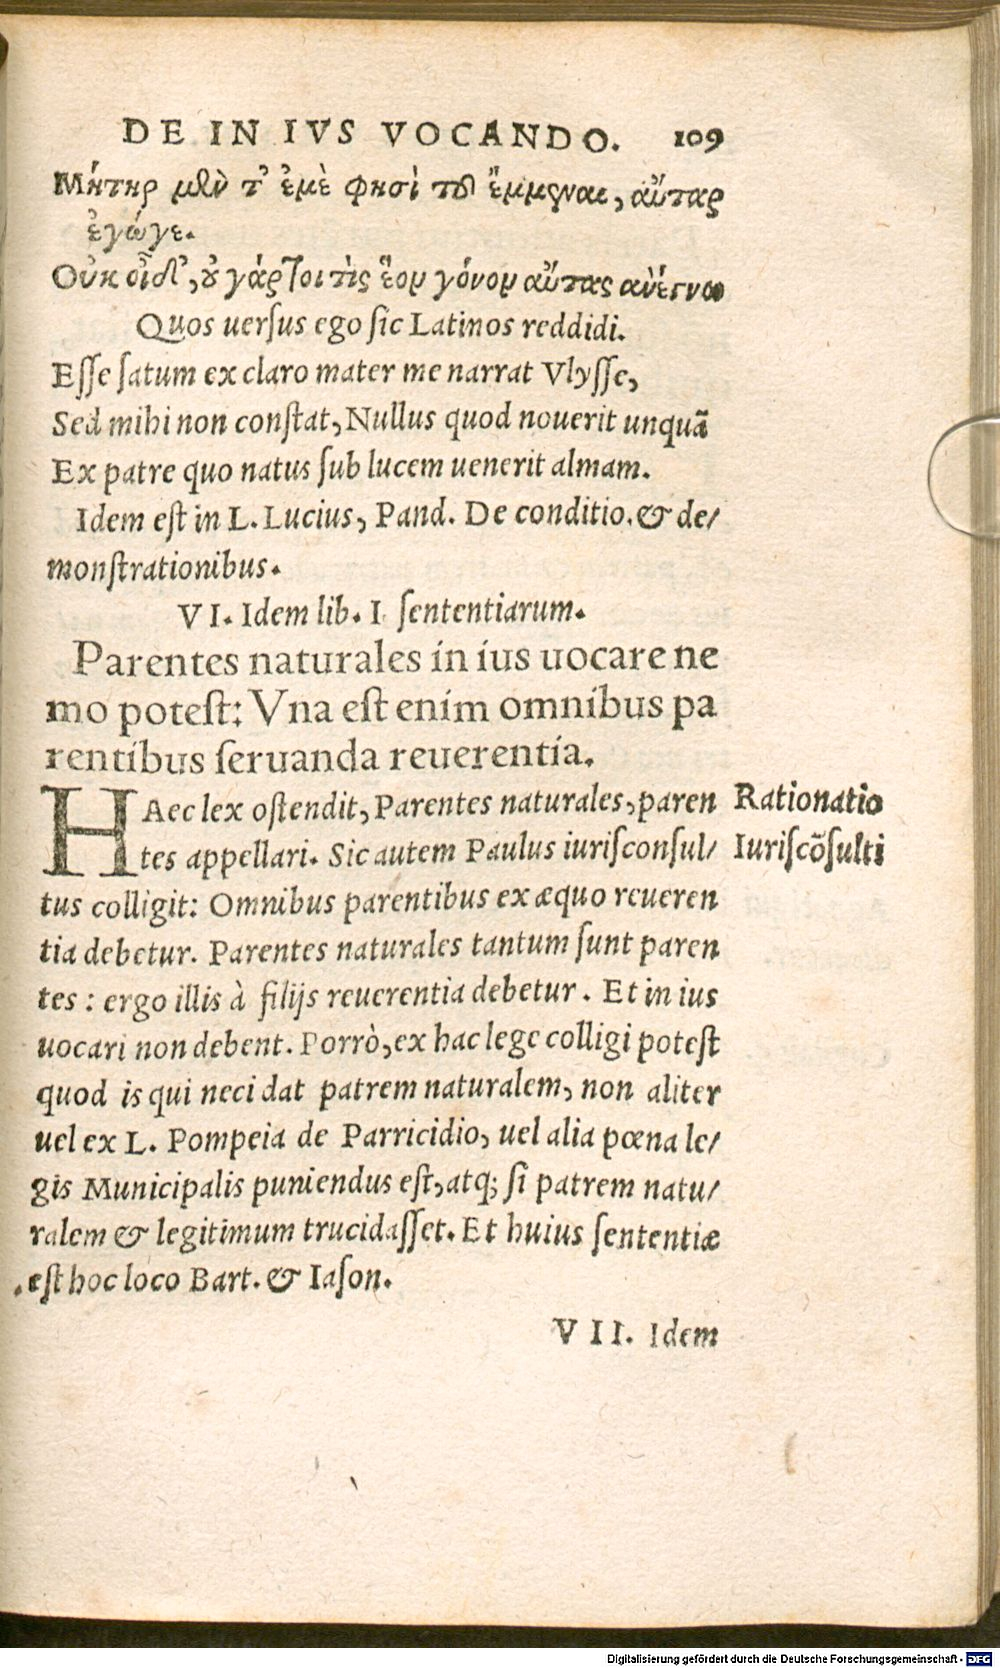 DE IN IVS VOCANDO. 109
Μήτηρ μὲν τ' ἐμὲ φησὶ τοῦ ἔμμεναι, αὔταρ
ἐγώγε.
Οὐκ οἶδ', ȣ γάρ τοι τὶς ἓον γόνον αὔτας ανέγνω
Quos uerſus ego ſic Latinos reddidi.
Eſſe ſatum ex claro mater me narrat Vlyſſe,
Sed mihi non conſtat, Nullus quod nouerit unquã
Ex patre quo natus ſub lucem uenerit almam.
Idem eſt in L. Lucius, Pand. De conditio. & de/
monſtrationibus.
VI. Idem lib. I ſententiarum.
Parentes naturales in ius uocare ne
mo poteſt: Vna eſt enim omnibus pa
rentibus ſeruanda reuerentia.
HAec lex oſtendit, Parentes naturales, paren
tes appellari. Sic autem Paulus iuriſconſul/
tus colligit: Omnibus parentibus ex æquo reueren
tia debetur. Parentes naturales tantum ſunt paren
tes: ergo illis à filijs reuerentia debetur. Et in ius
uocari non debent. Porrò, ex hac lege colligi poteſt
quod is qui neci dat patrem naturalem, non aliter
uel ex L. Pompeia de Parricidio, uel alia pœna le/
gis Municipalis puniendus eſt, atq; ſi patrem natu/
ralem & legitimum trucidaſſet. Et huius ſententiæ
eſt hoc loco Bart. & Iaſon.
VII. Idem
Rationatio
Iuriſcõſulti
Digitalisierung gefördert durch die Deutsche Forschungsgemeinschaft - DFG